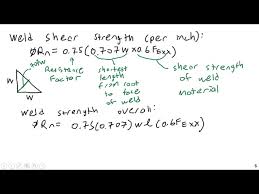 Weld shear strength (per inch):
ØRn = 0.75(0.707w × 0.6FExx)
.707w
w
w
Resistance Factor
shortest length from root to face of weld
shear strength of weld material
weld strength overall:
ØRn = 0.75(0.707)wl(0.6FExx)